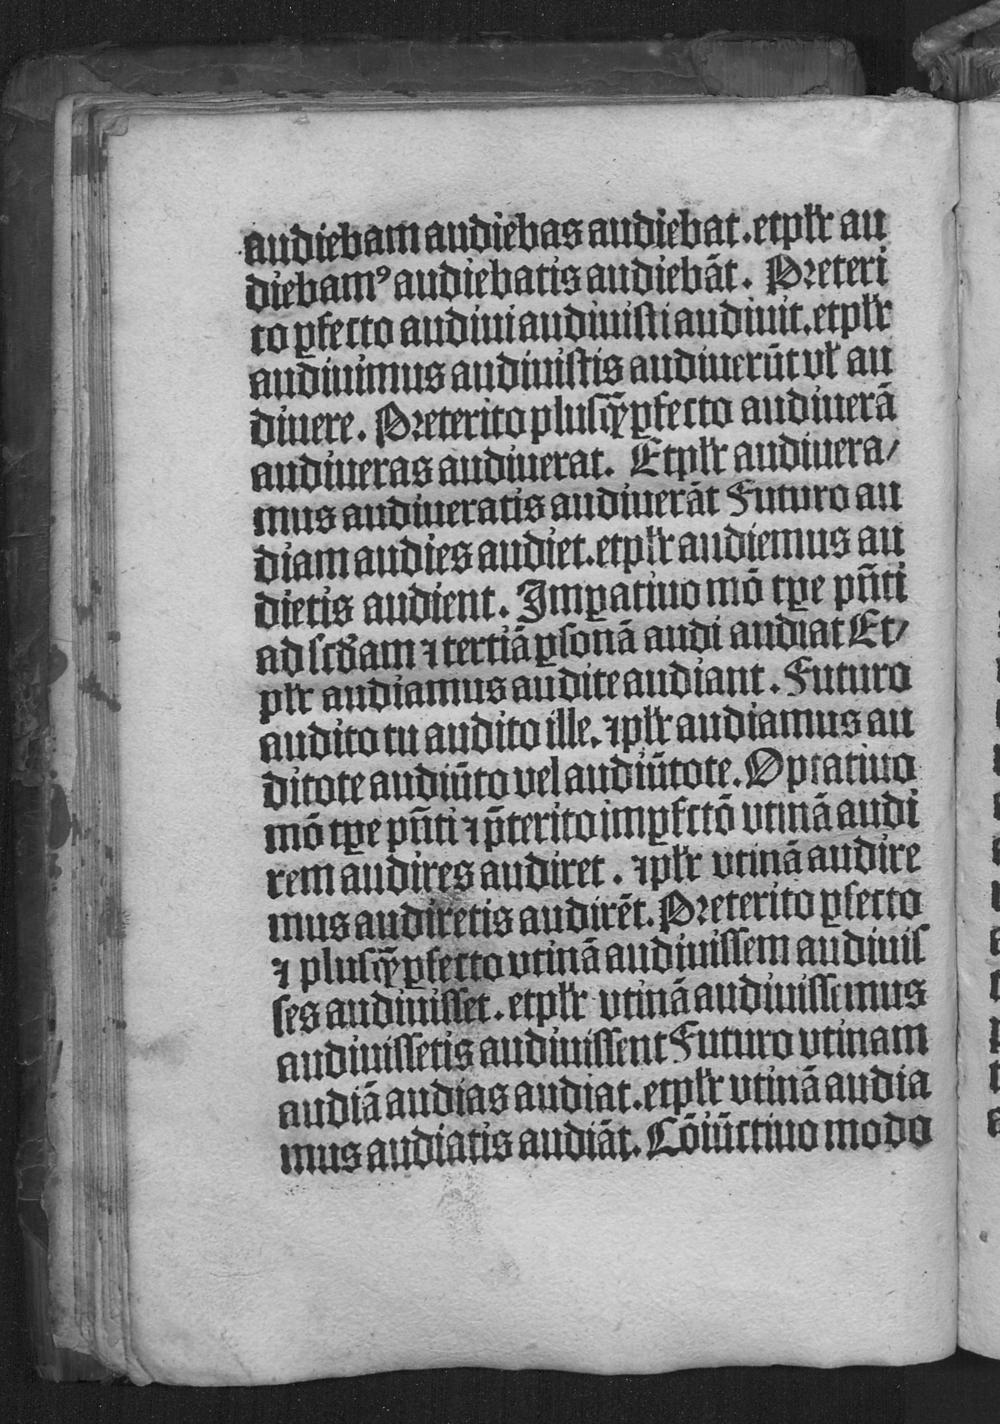 audiebam audiebas audiebat. et pl̃r au
diebamꝰ audiebatis audiebãt. Preteri
to ꝑfecto audiui audiuisti audiuit. et pl̃r
audiuimus audiuistis audiuerũt vł au
diuere. Preterito plusq̃ꝑfecto audiuerã
audiueras audiuerat. Et pl̃r audiuera/
mus audiueratis audiuerãt Futuro au
diam audies audiet. et pl̃r audiemus au
dietis audient. Imꝑatiuo mõ tꝑe pñti
ad scđam ⁊ tertiã ꝑsonã audi audiat Et/
pl̃r audiamus audite audiant. Futuro
audito tu audito ille. ⁊ pl̃r audiamus au
ditote audiũto vel audiũtote. Optatiuo
mõ tꝑe pñti ⁊ p̃terito imꝑfctõ vtinã audi
rem audires audiret. ⁊ pl̃r vtinã audire
mus audiretis audirẽt. Preterito ꝑfecto
⁊ plusq̃ꝑfecto vtinã audiuissem audiuis
ses audiuisset. et pl̃r vtinã audiuissemus
audiuissetis audiuissent Futuro vtinam
audiã audias audiat. et pl̃r vtinã audia
mus audiatis audiãt. Cõiũctiuo modo